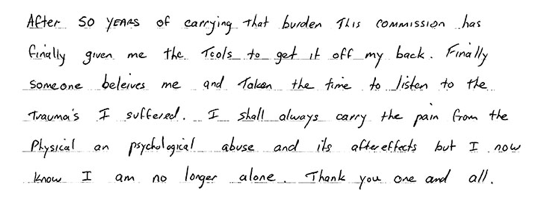 After 50 YEARS of carrying that burden This commission has
finally given me the Tools to get it off my back. Finally
someone beleives me and Taken the time to listen to the
Trauma's I suffered. I shall always carry the pain from the
Physical an psychological abuse and its aftereffects but I now
know I am no longer alone. Thank you one and all.